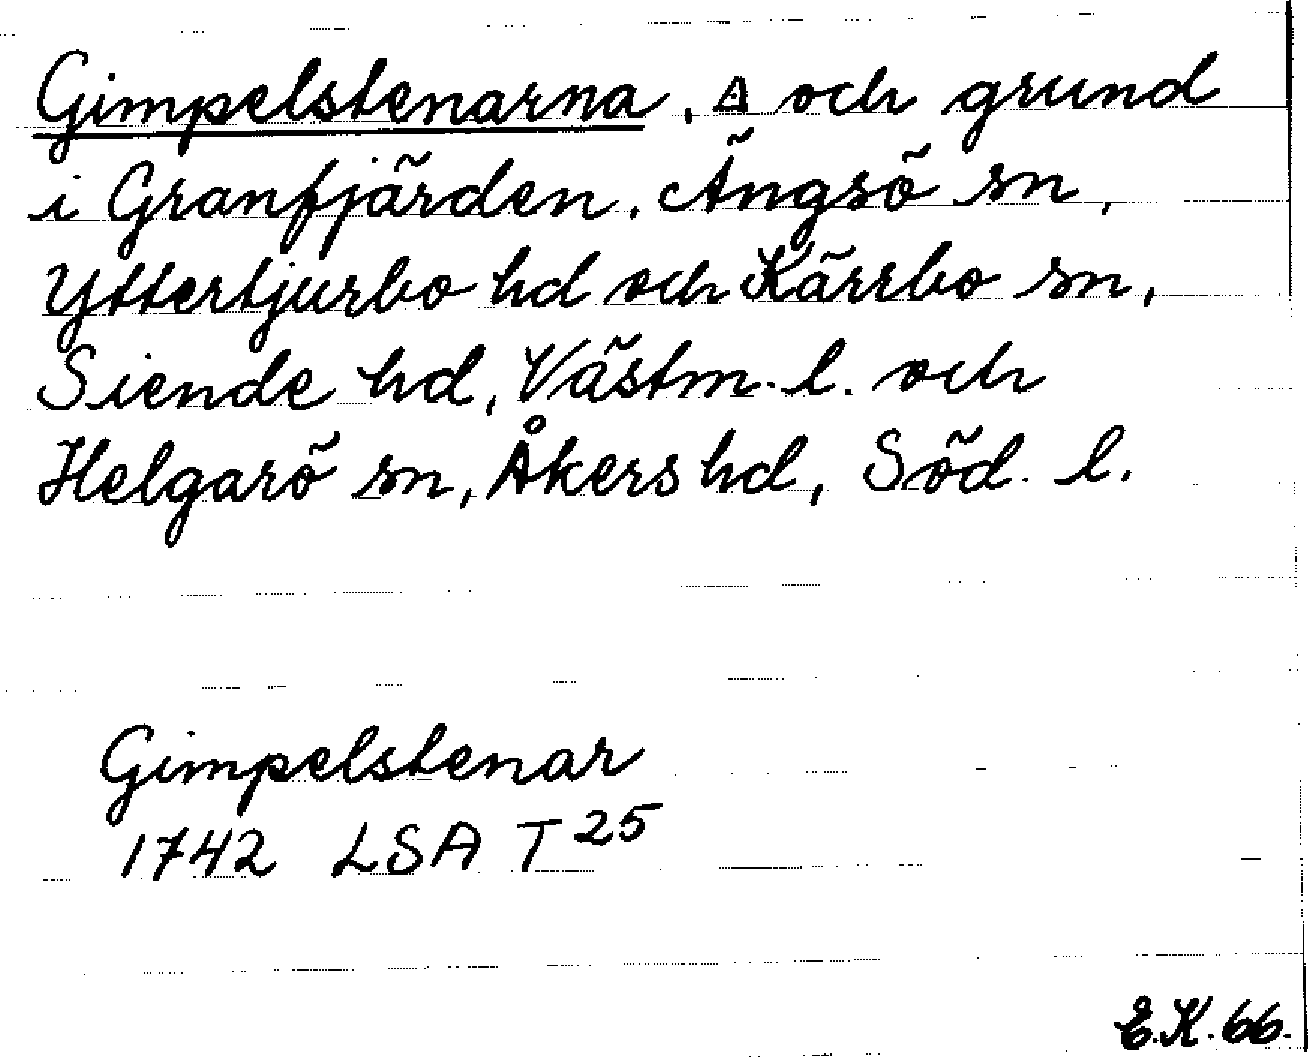 Gimpelstenarna, ⍙ och grund
i Granfjärden, Ängsö sn,
Yttertjurbo hd och Kärrbo sn,
Siende hd, Västm. l. och
Helgarö sn, Åkers hd, Söd. l.
Gimpelstenar
1742 LSA T 25
E.K. 66.